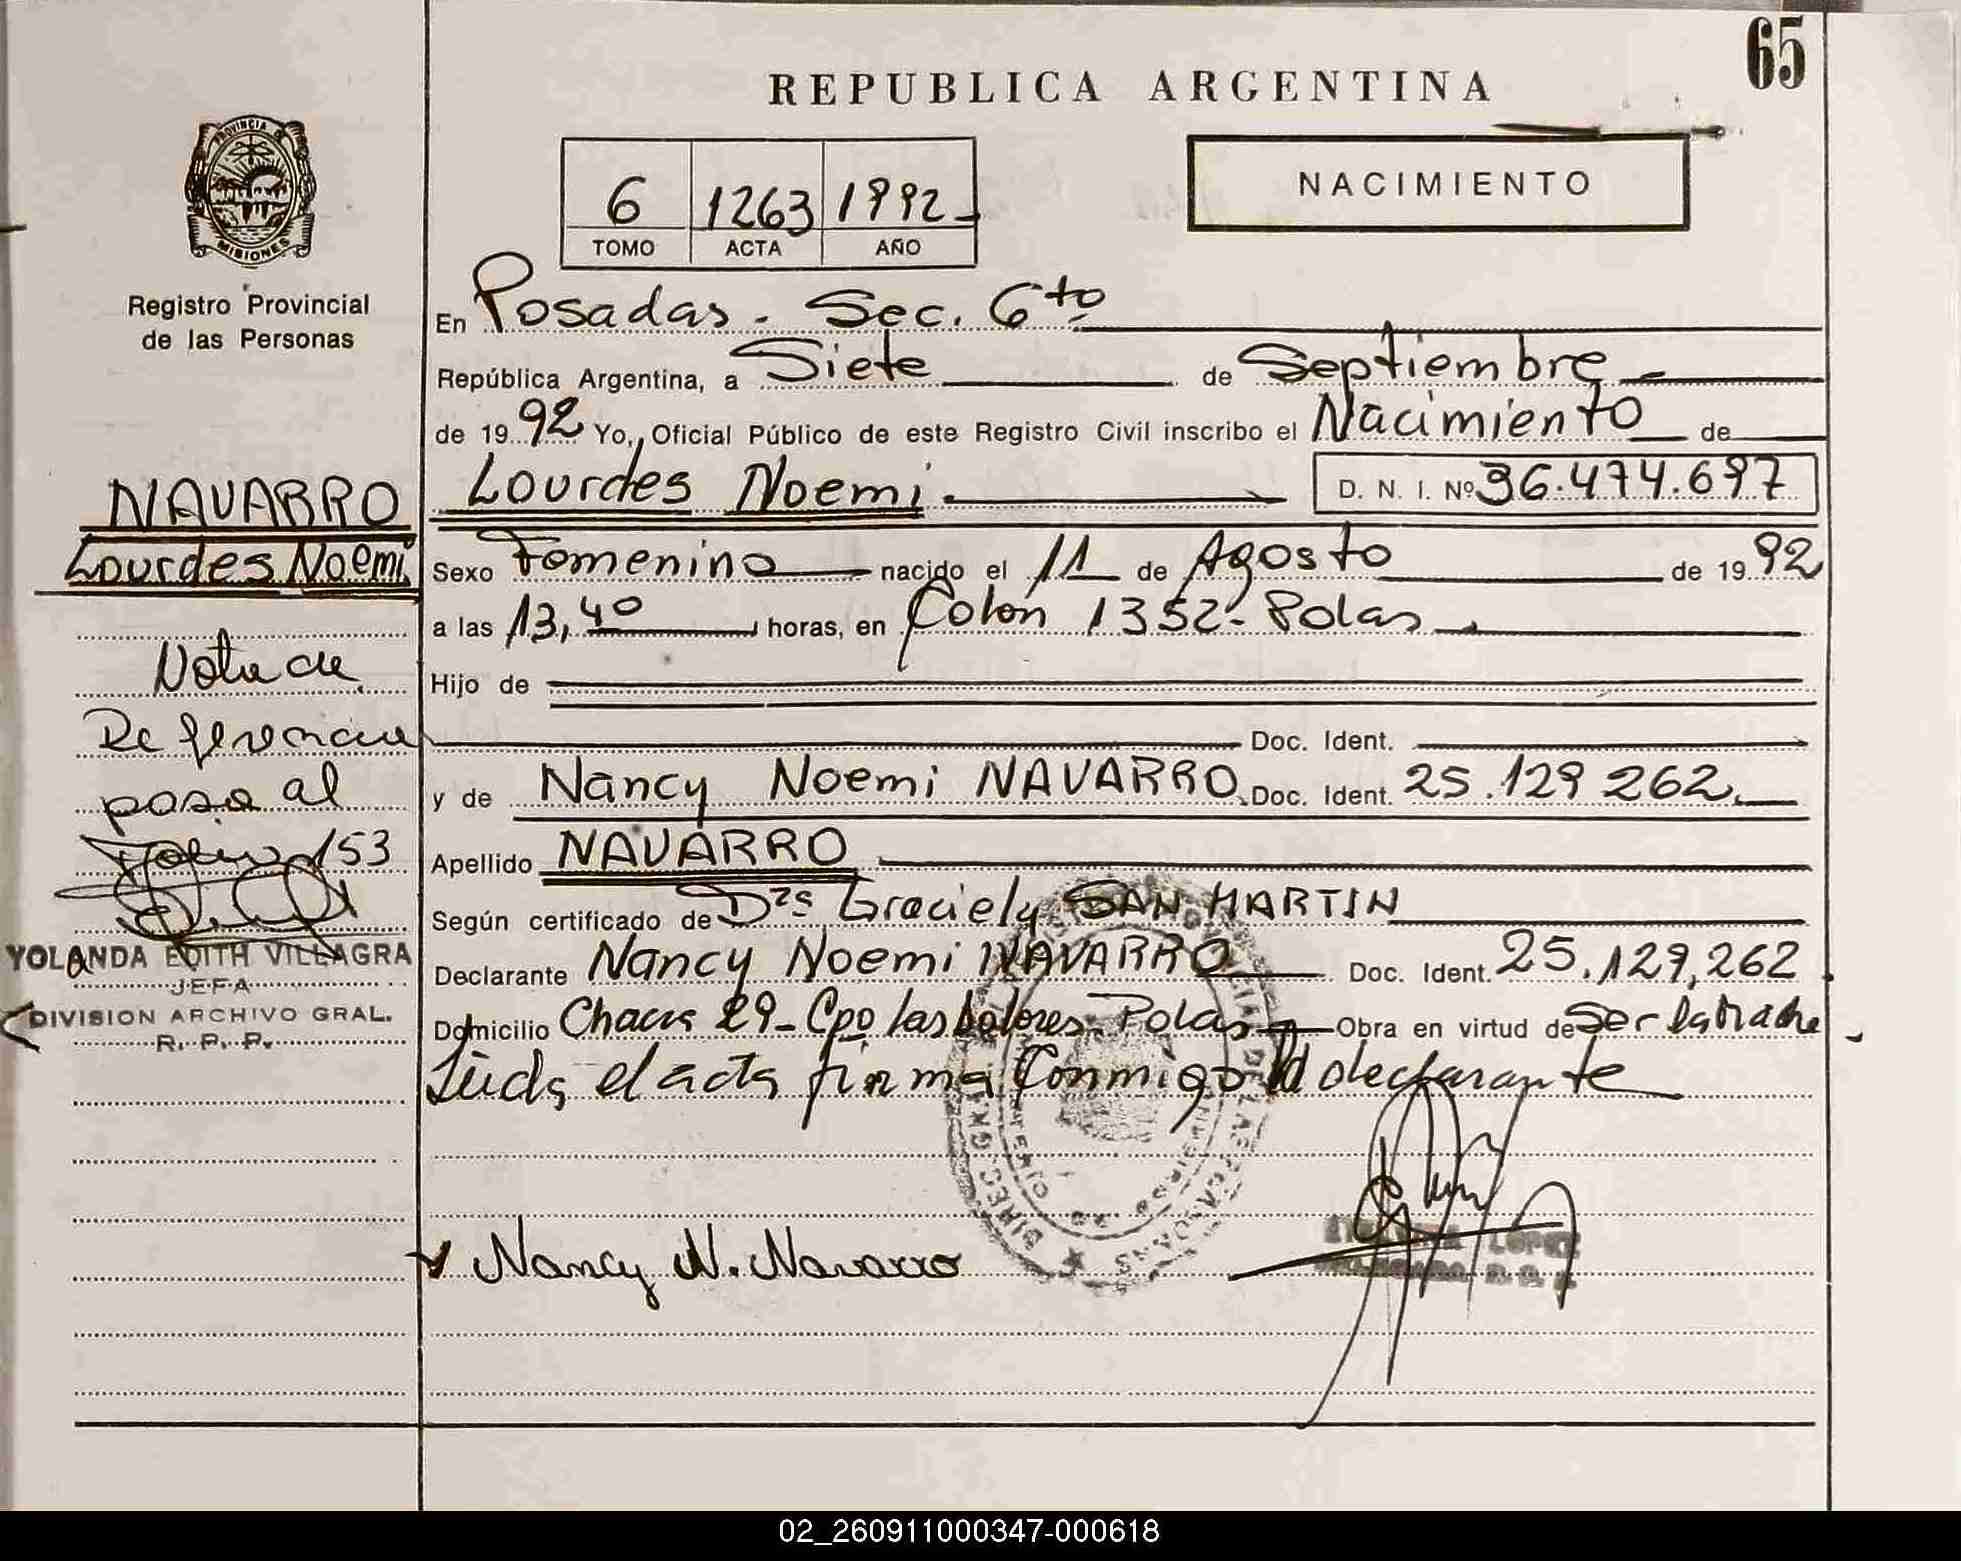 65
REPUBLICA ARGENTINA
PROVINCIA DE
MISIONES
6 1263 1992
TOMO ACTA AÑO
NACIMIENTO
Registro Provincial
de las Personas
En Posadas - Sec. 6to
República Argentina, a Siete de Septiembre
de 1992 Yo, Oficial Público de este Registro Civil inscribo el Nacimiento de
Lourdes Noemi. D. N. I. Nº 36.474.697
Sexo Femenino nacido el 11 de Agosto de 1992
a las 13,40 horas, en Colon 1352 - Pdas.
Hijo de
Doc. Ident.
y de Nancy Noemi NAVARRO. Doc. Ident. 25.129 262.
Apellido NAVARRO
Según certificado de Dra Graciela SAN MARTIN
Declarante Nancy Noemi NAVARRO Doc. Ident. 25.129,262
Domicilio Chacra 29 - Cpo las Dolores - Pdas Obra en virtud de Ser la Madre
Leida el acta firma Conmigo la declarante
Nancy N. Navarro
LOPEZ
NAVARRO
Lourdes Noemi
Nota de
Referencia
pasa al
Folio 153
YOLANDA EDITH VILLAGRA
JEFA
DIVISION ARCHIVO GRAL.
R. P. P.
02_260911000347-000618